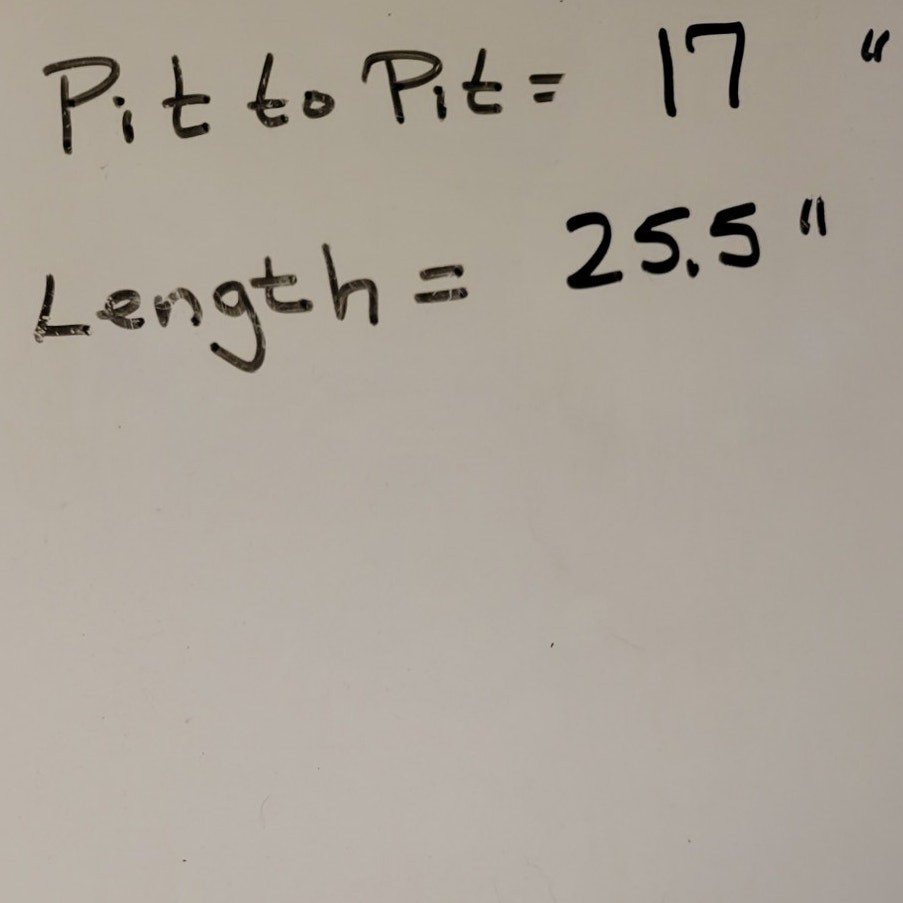 Pit to Pit = 17 "
Length = 25.5 "